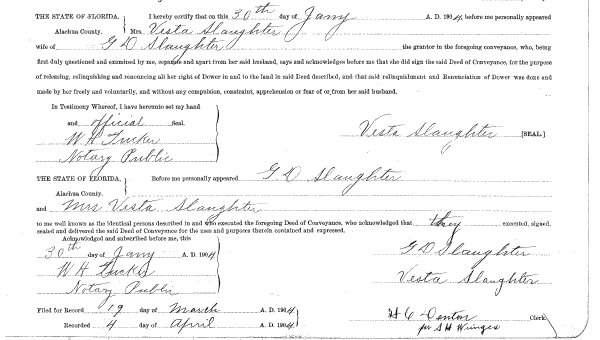 THE STATE OF FLORIDA. I hereby certify that on this 30th day of Jany A. D. 1904, before me personally appeared
Alachua County. Mrs. Vesta Slaughter
wife of G D Slaughter the grantor in the foregoing conveyance, who, being
first duly questioned and examined by me, separate and apart from her said husband, says and acknowledges before me that she did sign the said Deed of Conveyance, for the purpose
of releasing, relinquishing and renouncing all her right of Dower in and to the land in said Deed described, and that said relinquishment and Renunciation of Dower was done and
made by her freely and voluntarily, and without any compulsion, constraint, apprehension or fear of or from her said husband.
In Testimony Whereof, I have hereunto set my hand
and official Seal.
W H Tucker
Notary Public
Vesta Slaughter [SEAL.]
THE STATE OF FLORIDA. Before me personally appeared G D Slaughter
Alachua County.
and Mrs Vesta Slaughter
to me well known as the identical persons described in and who executed the foregoing Deed of Conveyance, who acknowledged that they executed, signed,
sealed and delivered the said Deed of Conveyance for the uses and purposes therein contained and expressed.
Acknowledged and subscribed before me, this
30th day of Jany A. D. 1904
W H Tucker
Notary Public
G D Slaughter
Vesta Slaughter
Filed for Record 19 day of March A. D. 1904
Recorded 4 day of April A. D. 1904
H C Denton Clerk
per S H Wienges